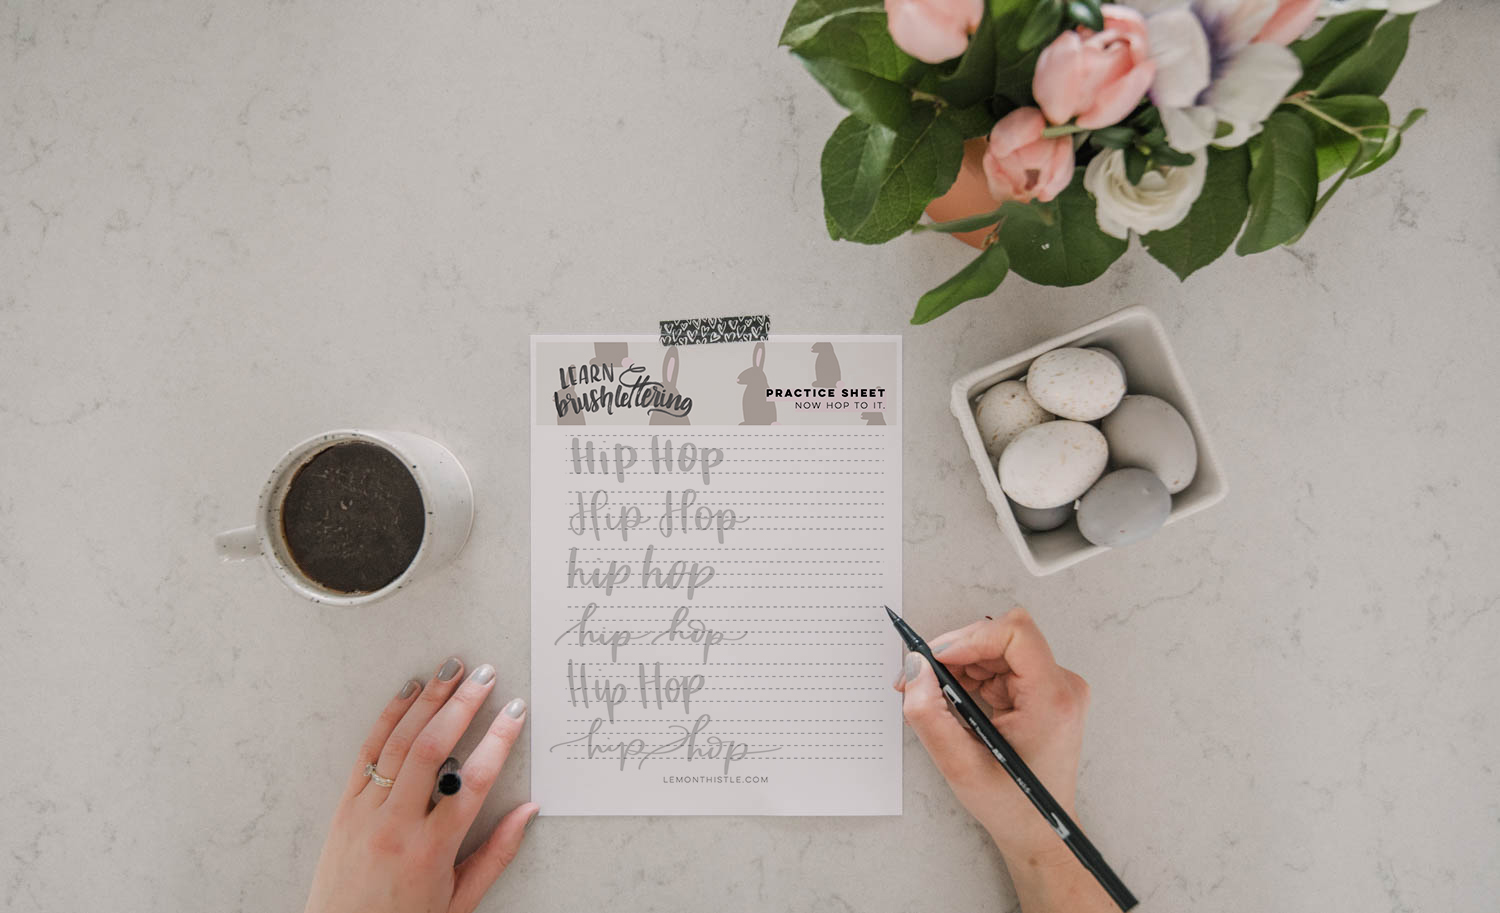 LEARN
brushlettering
PRACTICE SHEET
NOW HOP TO IT.
Hip Hop
Hip Hop
hip hop
hip hop
Hip Hop
hip hop
LEMONTHISTLE.COM